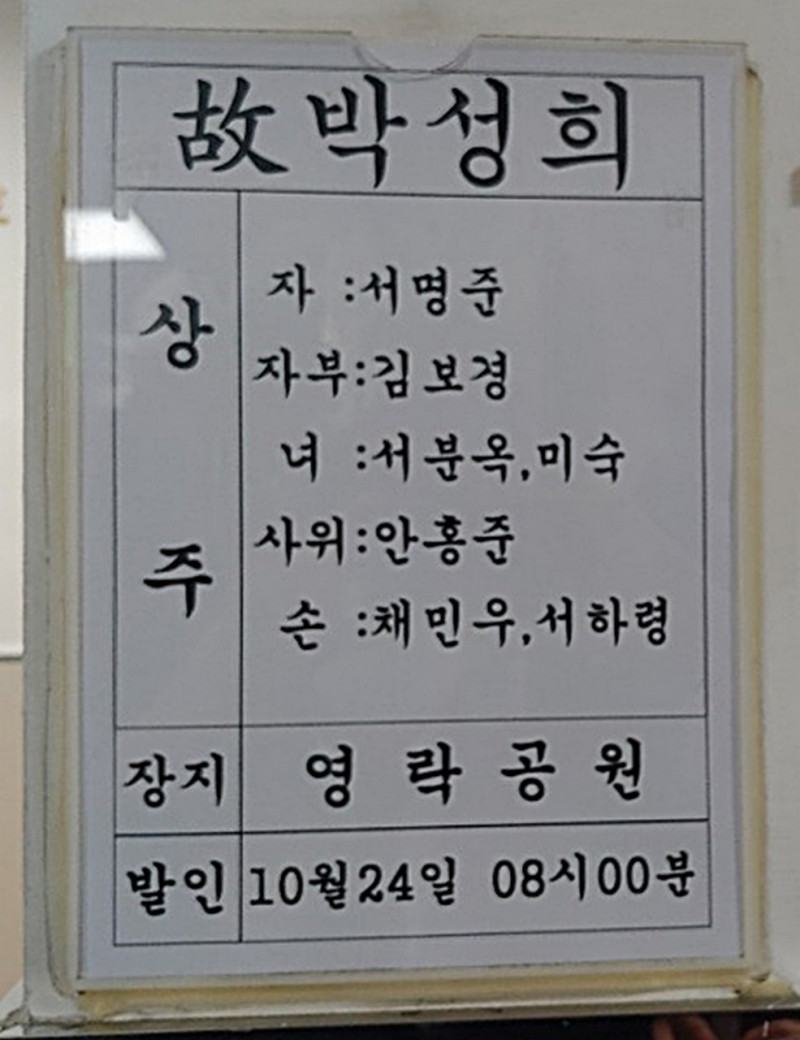 故박성희
상주
자 :서명준
자부:김보경
녀 :서분옥,미숙
사위:안홍준
손 :채민우,서하령
장지 영락공원
발인 10월24일 08시00분